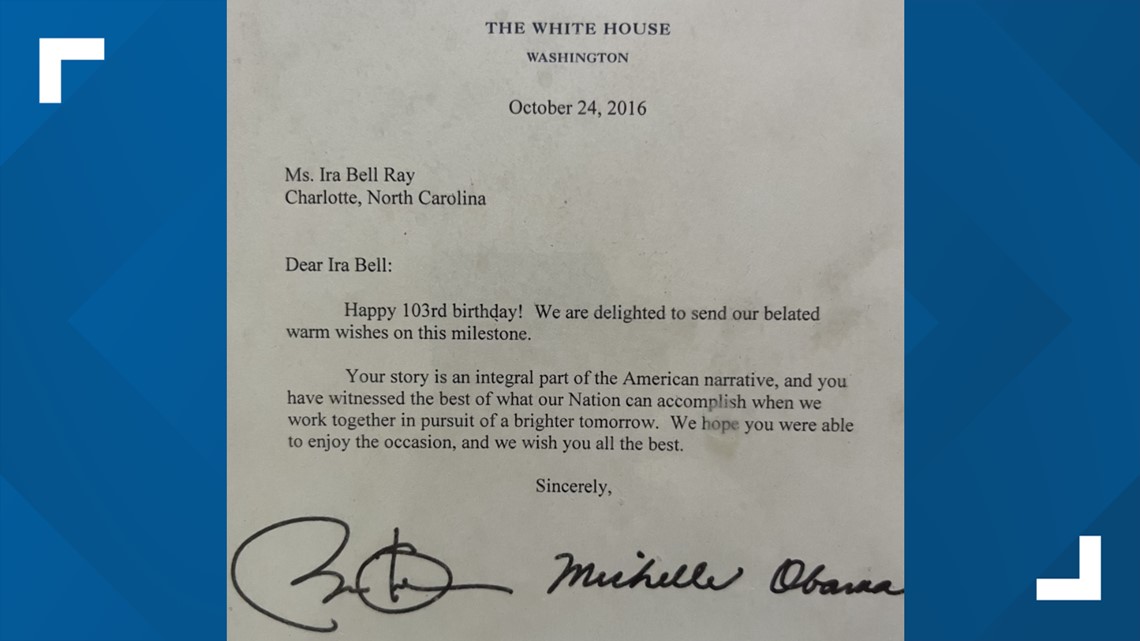 THE WHITE HOUSE
WASHINGTON
October 24, 2016
Ms. Ira Bell Ray
Charlotte, North Carolina
Dear Ira Bell:
Happy 103rd birthday! We are delighted to send our belated
warm wishes on this milestone.
Your story is an integral part of the American narrative, and you
have witnessed the best of what our Nation can accomplish when we
work together in pursuit of a brighter tomorrow. We hope you were able
to enjoy the occasion, and we wish you all the best.
Sincerely,
Michelle Obama